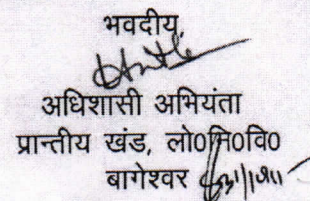 भवदीय,
अधिशासी अभियंता
प्रान्तीय खंड, लो०नि०वि०
बागेश्वर